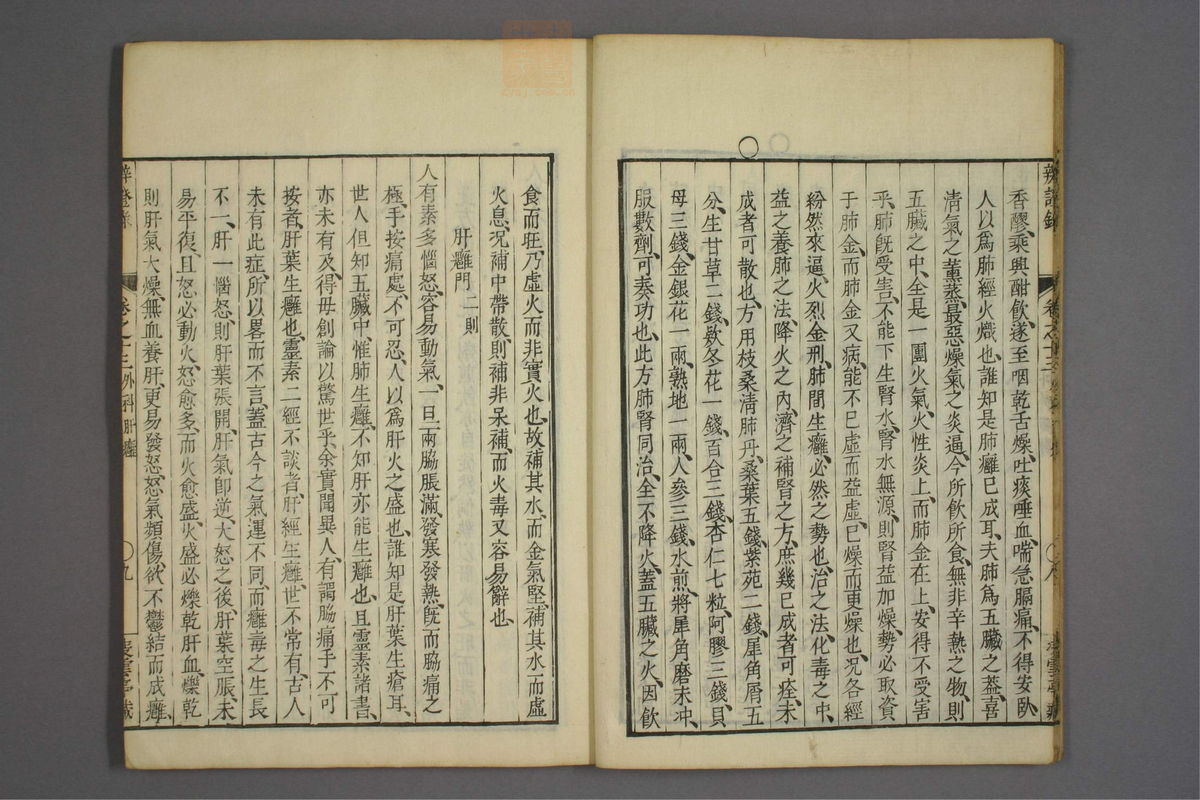 香醪乘興酣飲遂至咽乾舌燥吐痰唾血喘急膈痛不得安臥
人以爲肺經火熾也誰知是肺癰已成耳夫肺爲五臟之葢喜
淸氣之薰蒸最惡燥氣之炎逼今所飲所食無非辛熱之物則
五臟之中全是一團火氣火性炎上而肺金在上安得不受害
乎肺旣受害不能下生腎水腎水無源則腎益加燥勢必取資
于肺金而肺金又病能不已虛而益虛已燥而更燥也况各經
紛然來逼火烈金刑肺間生癰必然之勢也治之法化毒之中
益之養肺之法降火之內濟之補腎之方庶幾已成者可痊未
成者可散也方用枝桑淸肺丹桑葉五錢紫苑二錢犀角屑五
分生甘草二錢欵冬花一錢百合三錢杏仁七粒阿膠三錢貝
母三錢金銀花一兩熟地一兩人參三錢水煎將犀角磨末冲
服數劑可奏功也此方肺腎同治全不降火葢五臟之火因飲
食而旺乃虛火而非實火也故補其水而金氣堅補其水而虛
火息况補中帶散則補非呆補而火毒又容易辭也
肝癰門二則
人有素多惱怒容易動氣一旦兩脇脹滿發寒發熱旣而脇痛之
極手按痛處不可忍人以爲肝火之盛也誰知是肝葉生瘡耳
世人但知五臟中惟肺生癰不知肝亦能生癰也且靈素諸書
亦未有及得毋創論以驚世乎余實聞異人有謂脇痛手不可
按者肝葉生癰也靈素二經不談者肝經生癰世不常有古人
未有此症所以畧而不言葢古今之氣運不同而癰毒之生長
不一肝一惱怒則肝葉張開肝氣卽逆大怒之後肝葉空脹未
易平復且怒必動火怒愈多而火愈盛火盛必爍乾肝血爍乾
則肝氣大燥無血養肝更易發怒怒氣頻傷欲不鬱結而成癰
卷之十三外科肝癰
九